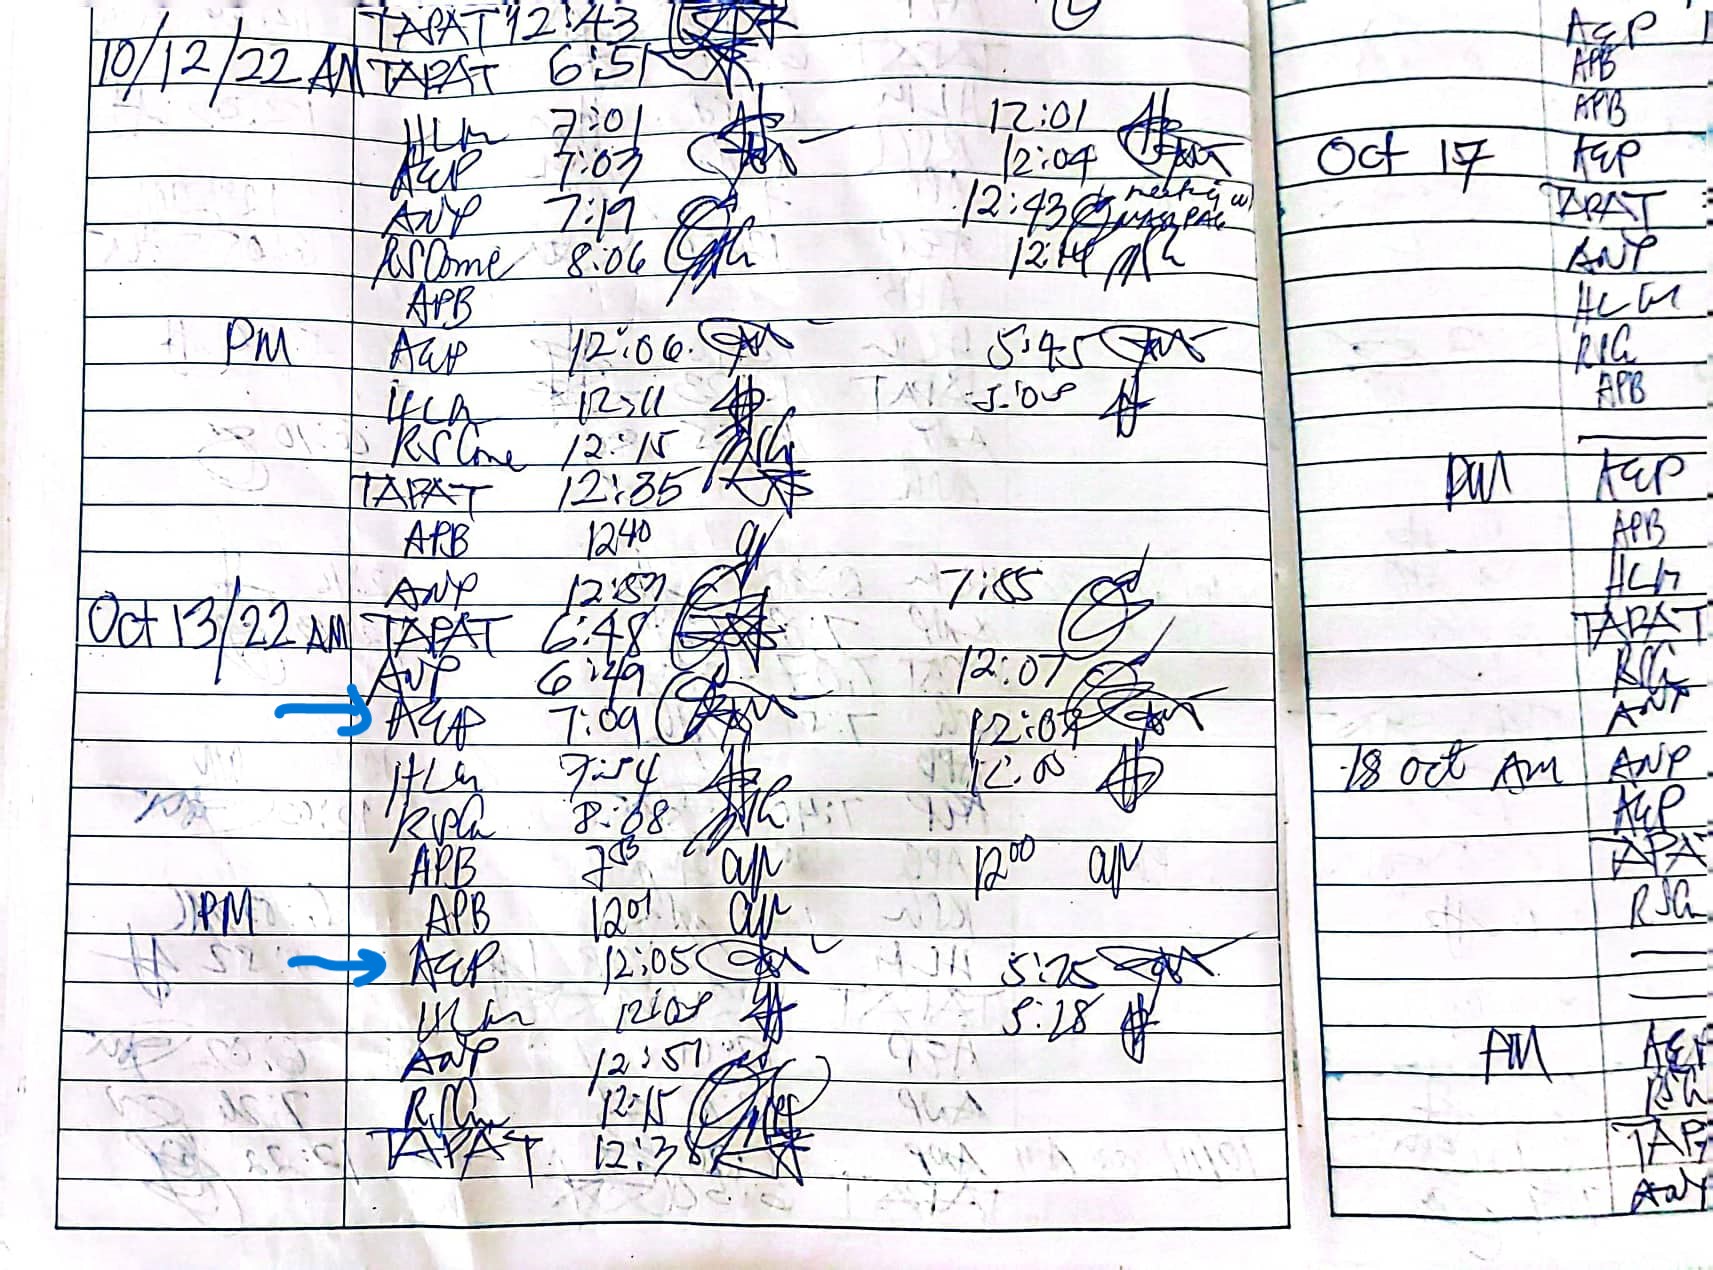 TAPAT 12:43
10/12/22 AM TAPAT 6:51
HLM 7:01 12:01
AEP 7:03 12:04
ANP 7:19 12:43 meeting w/
RSCome 8:06 12:14
APB
PM AEP 12:06 5:45
HLM 12:11 5:08
RSCome 12:15
TAPAT 12:35
APB 1240
ANP 12:57 7:55
Oct 13/22 AM TAPAT 6:48
ANP 6:49 12:07
AEP 7:09 12:07
HLM 7:54 12:00
8:08
APB 12⁰⁰
PM APB 12⁰¹
AEP 12:05 5:25
HLM 12:08 5:28
ANP 12:57
12:15
TAPAT 12:38
AEP
APB
APB
Oct 17 AEP
TAPAT
ANP
HLM
APB
PM AEP
APB
HLM
TAPAT
RSG
ANP
18 Oct AM ANP
AEP
TAPA
RSG
PM AEP
RSG
TAP
ANP